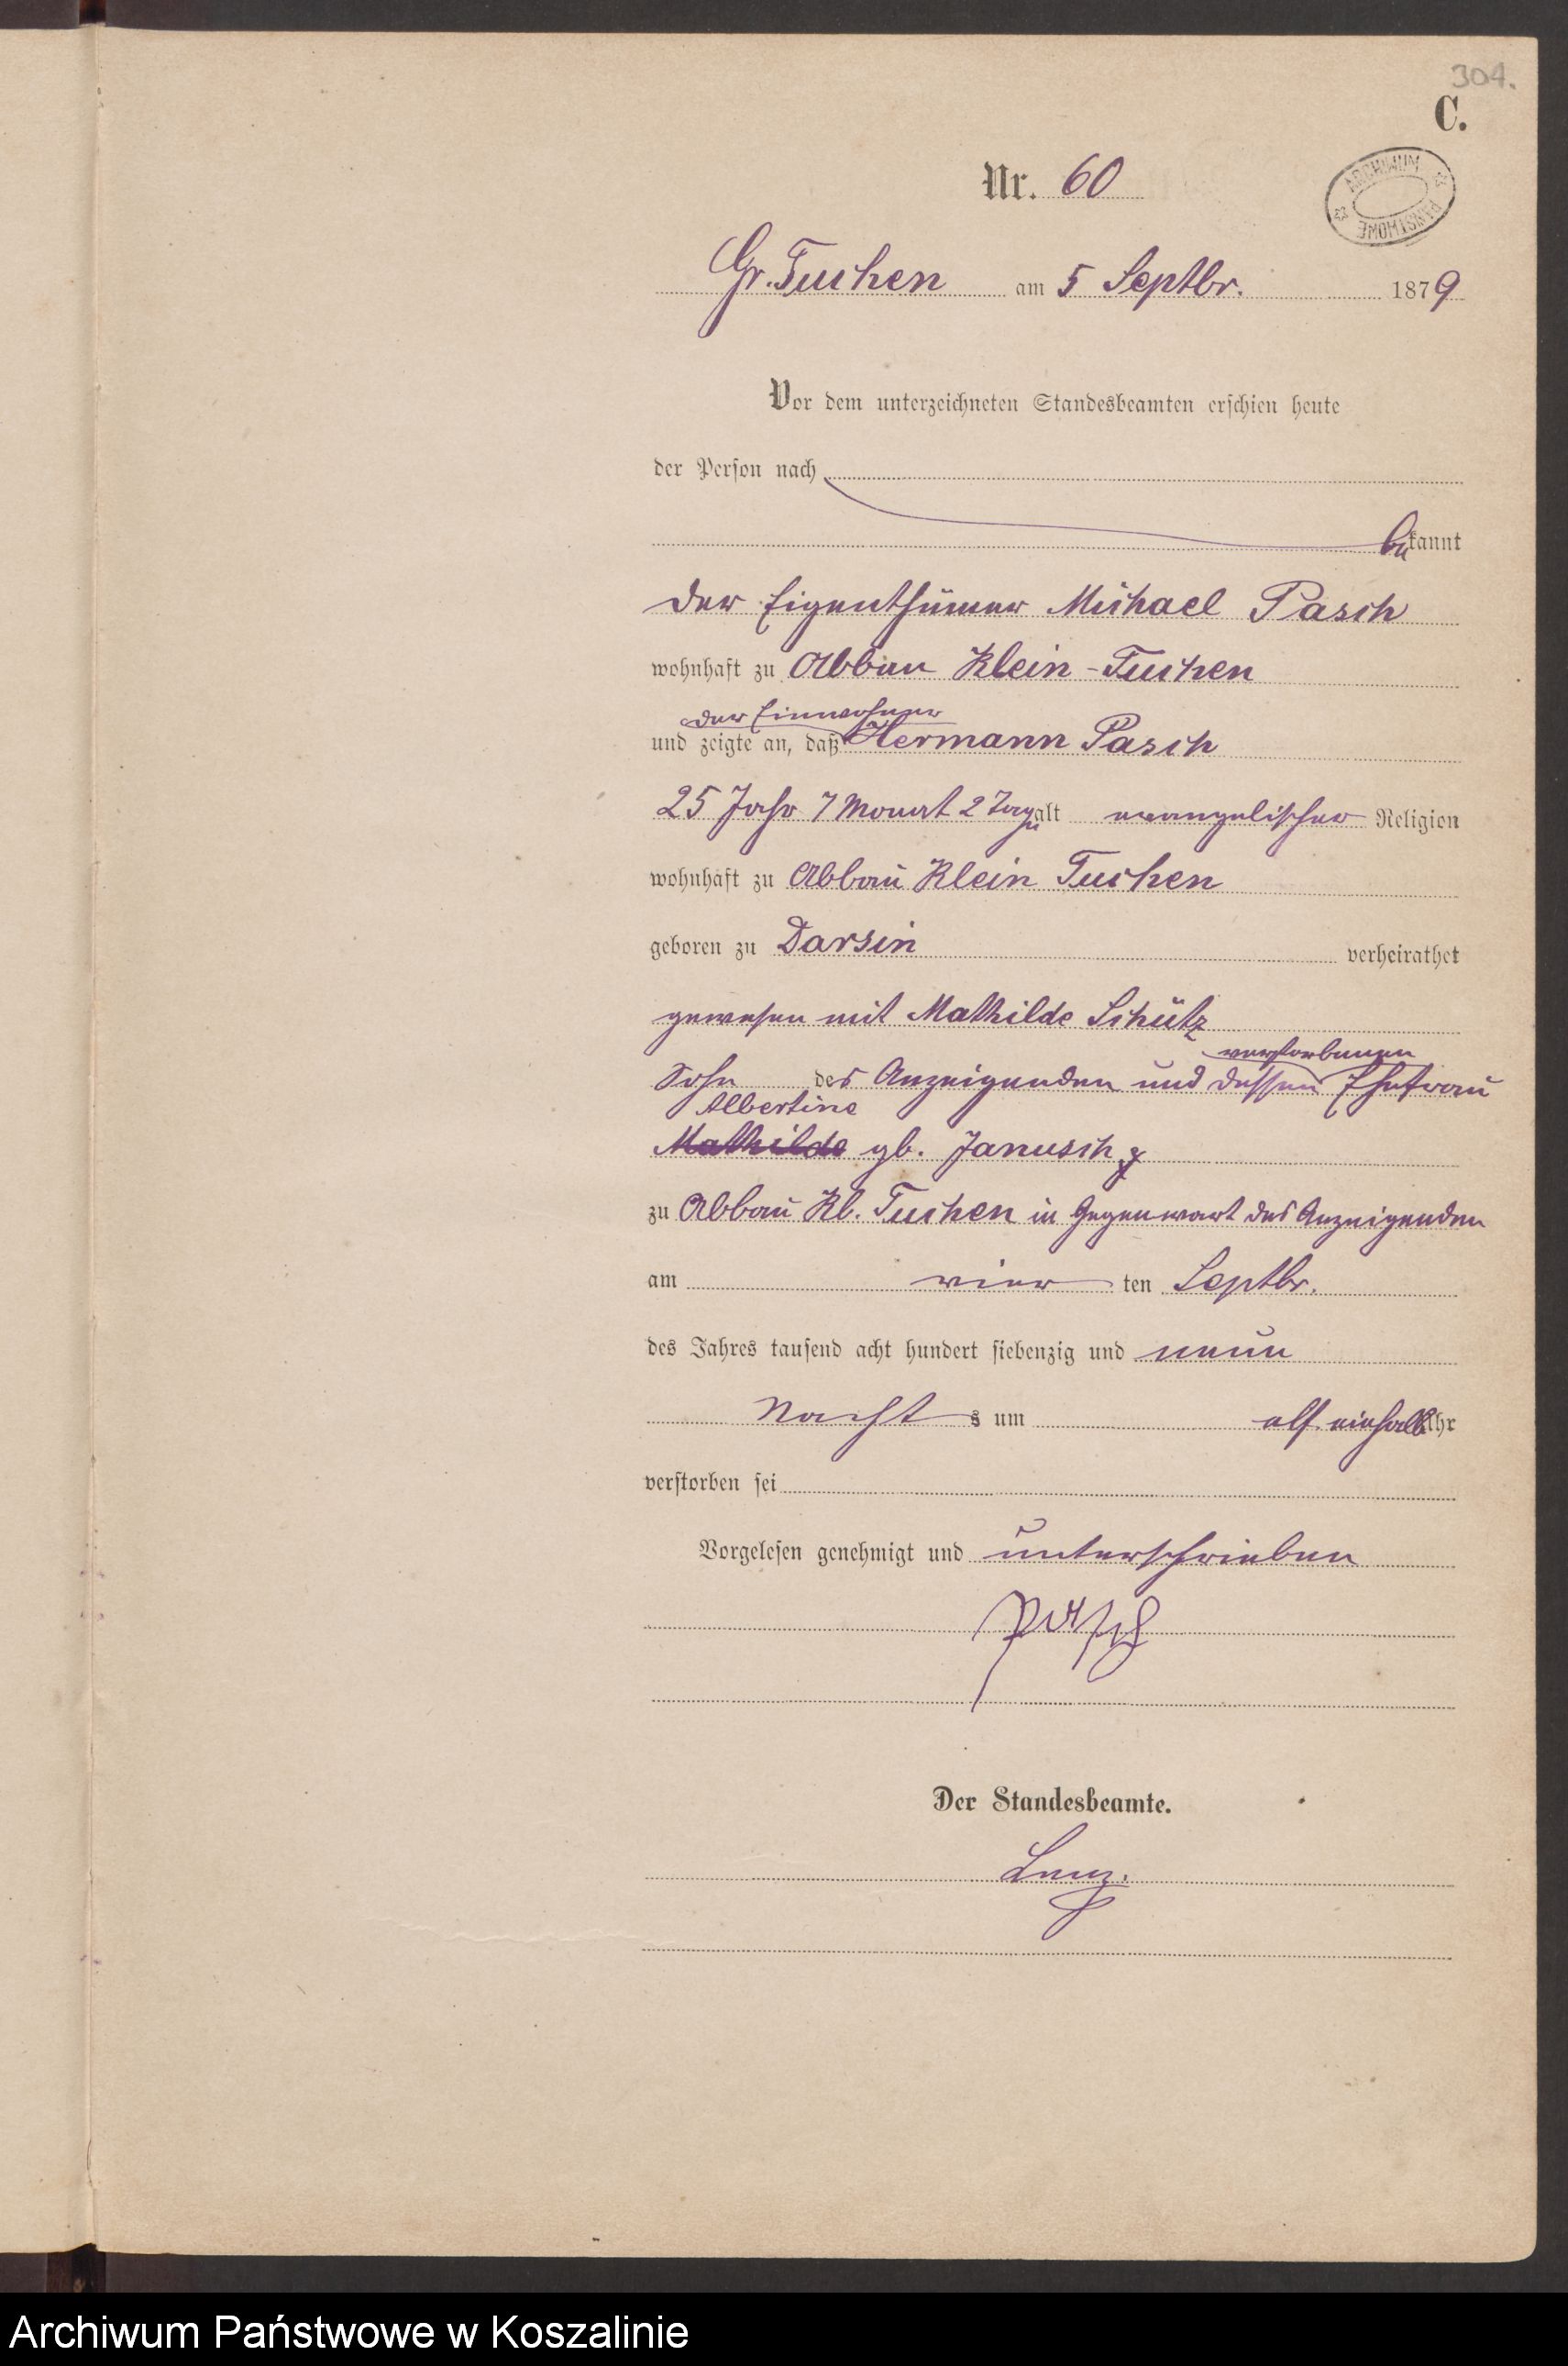 304.
C.
ARCHIWUM PAŃSTWOWE
Nr. 60
Gr. Tuchen am 5 Septbr. 1879
Vor dem unterzeichneten Standesbeamten erschien heute
der Person nach
bekannt
der Eigenthümer Michael Pasch
wohnhaft zu Abbau Klein-Tuchen
der Einwohner
und zeigte an, daß Hermann Pasch
25 Jahr 7 Monat 2 Tage alt evangelischer Religion
wohnhaft zu Abbau Klein Tuchen
geboren zu Darsin verheirathet
gewesen mit Mathilde Schütz
verstorbenen
Sohn des Anzeigenden und dessen Ehefrau
Albertine
Mathilde gb. Janusch
zu Abbau Kl. Tuchen in Gegenwart des Anzeigenden
am vier ten Septbr.
des Jahres tausend acht hundert siebenzig und neun
Nacht s um elf einhalb Uhr
verstorben sei
Vorgelesen genehmigt und unterschrieben
Pasch
Der Standesbeamte.
Lenz.
Archiwum Państwowe w Koszalinie